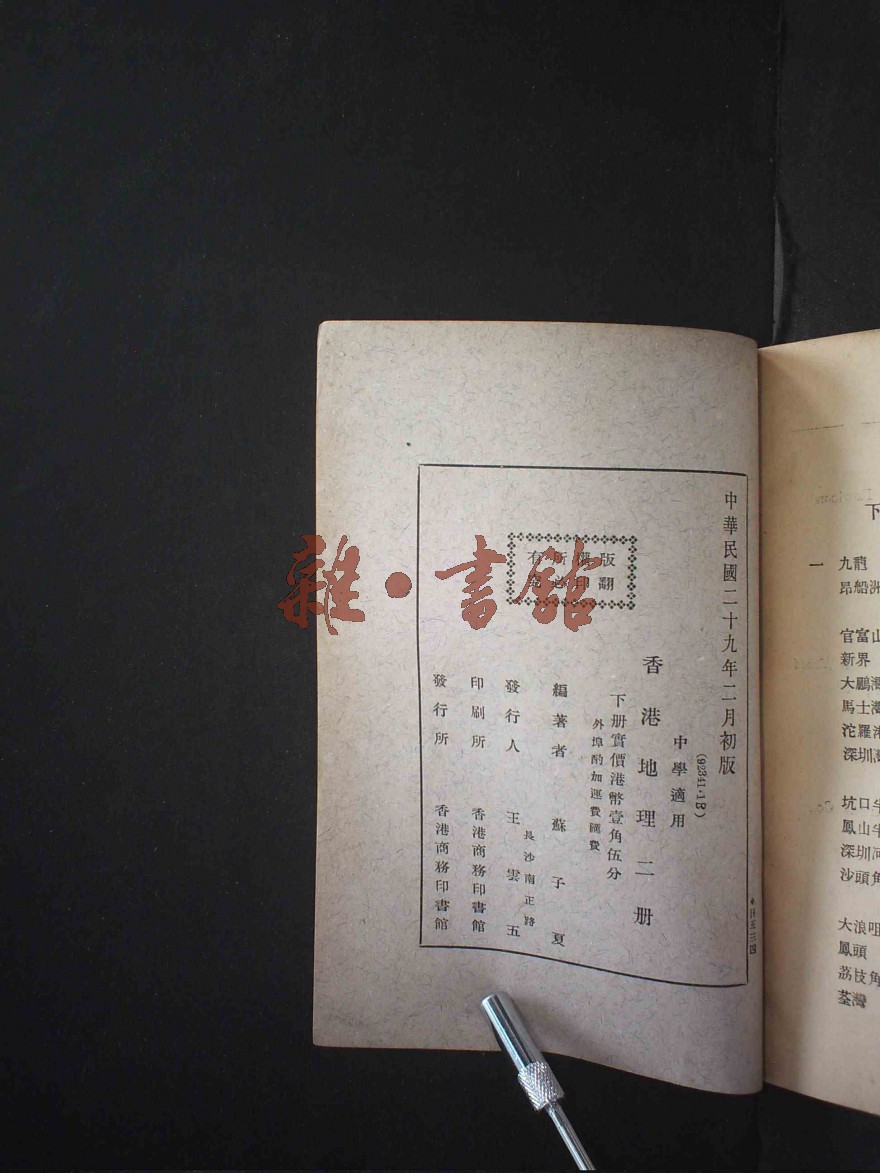 中華民國二十九年二月初版
(92341·1B)
中學適用
香港地理二册
下册實價港幣壹角伍分
外埠酌加運費匯費
版權所有
翻印必究
編著者 蘇子夏
長沙南正路
發行人 王雲五
印刷所 香港商務印書館
發行所 香港商務印書館
雜·書館
下
一 九龍
昂船洲
官富山
新界
大鵬灣
馬士灣
沱羅港
深圳灣
坑口半
鳳山半
深圳河
沙頭角
大浪咀
鳳頭
荔枝角
荃灣